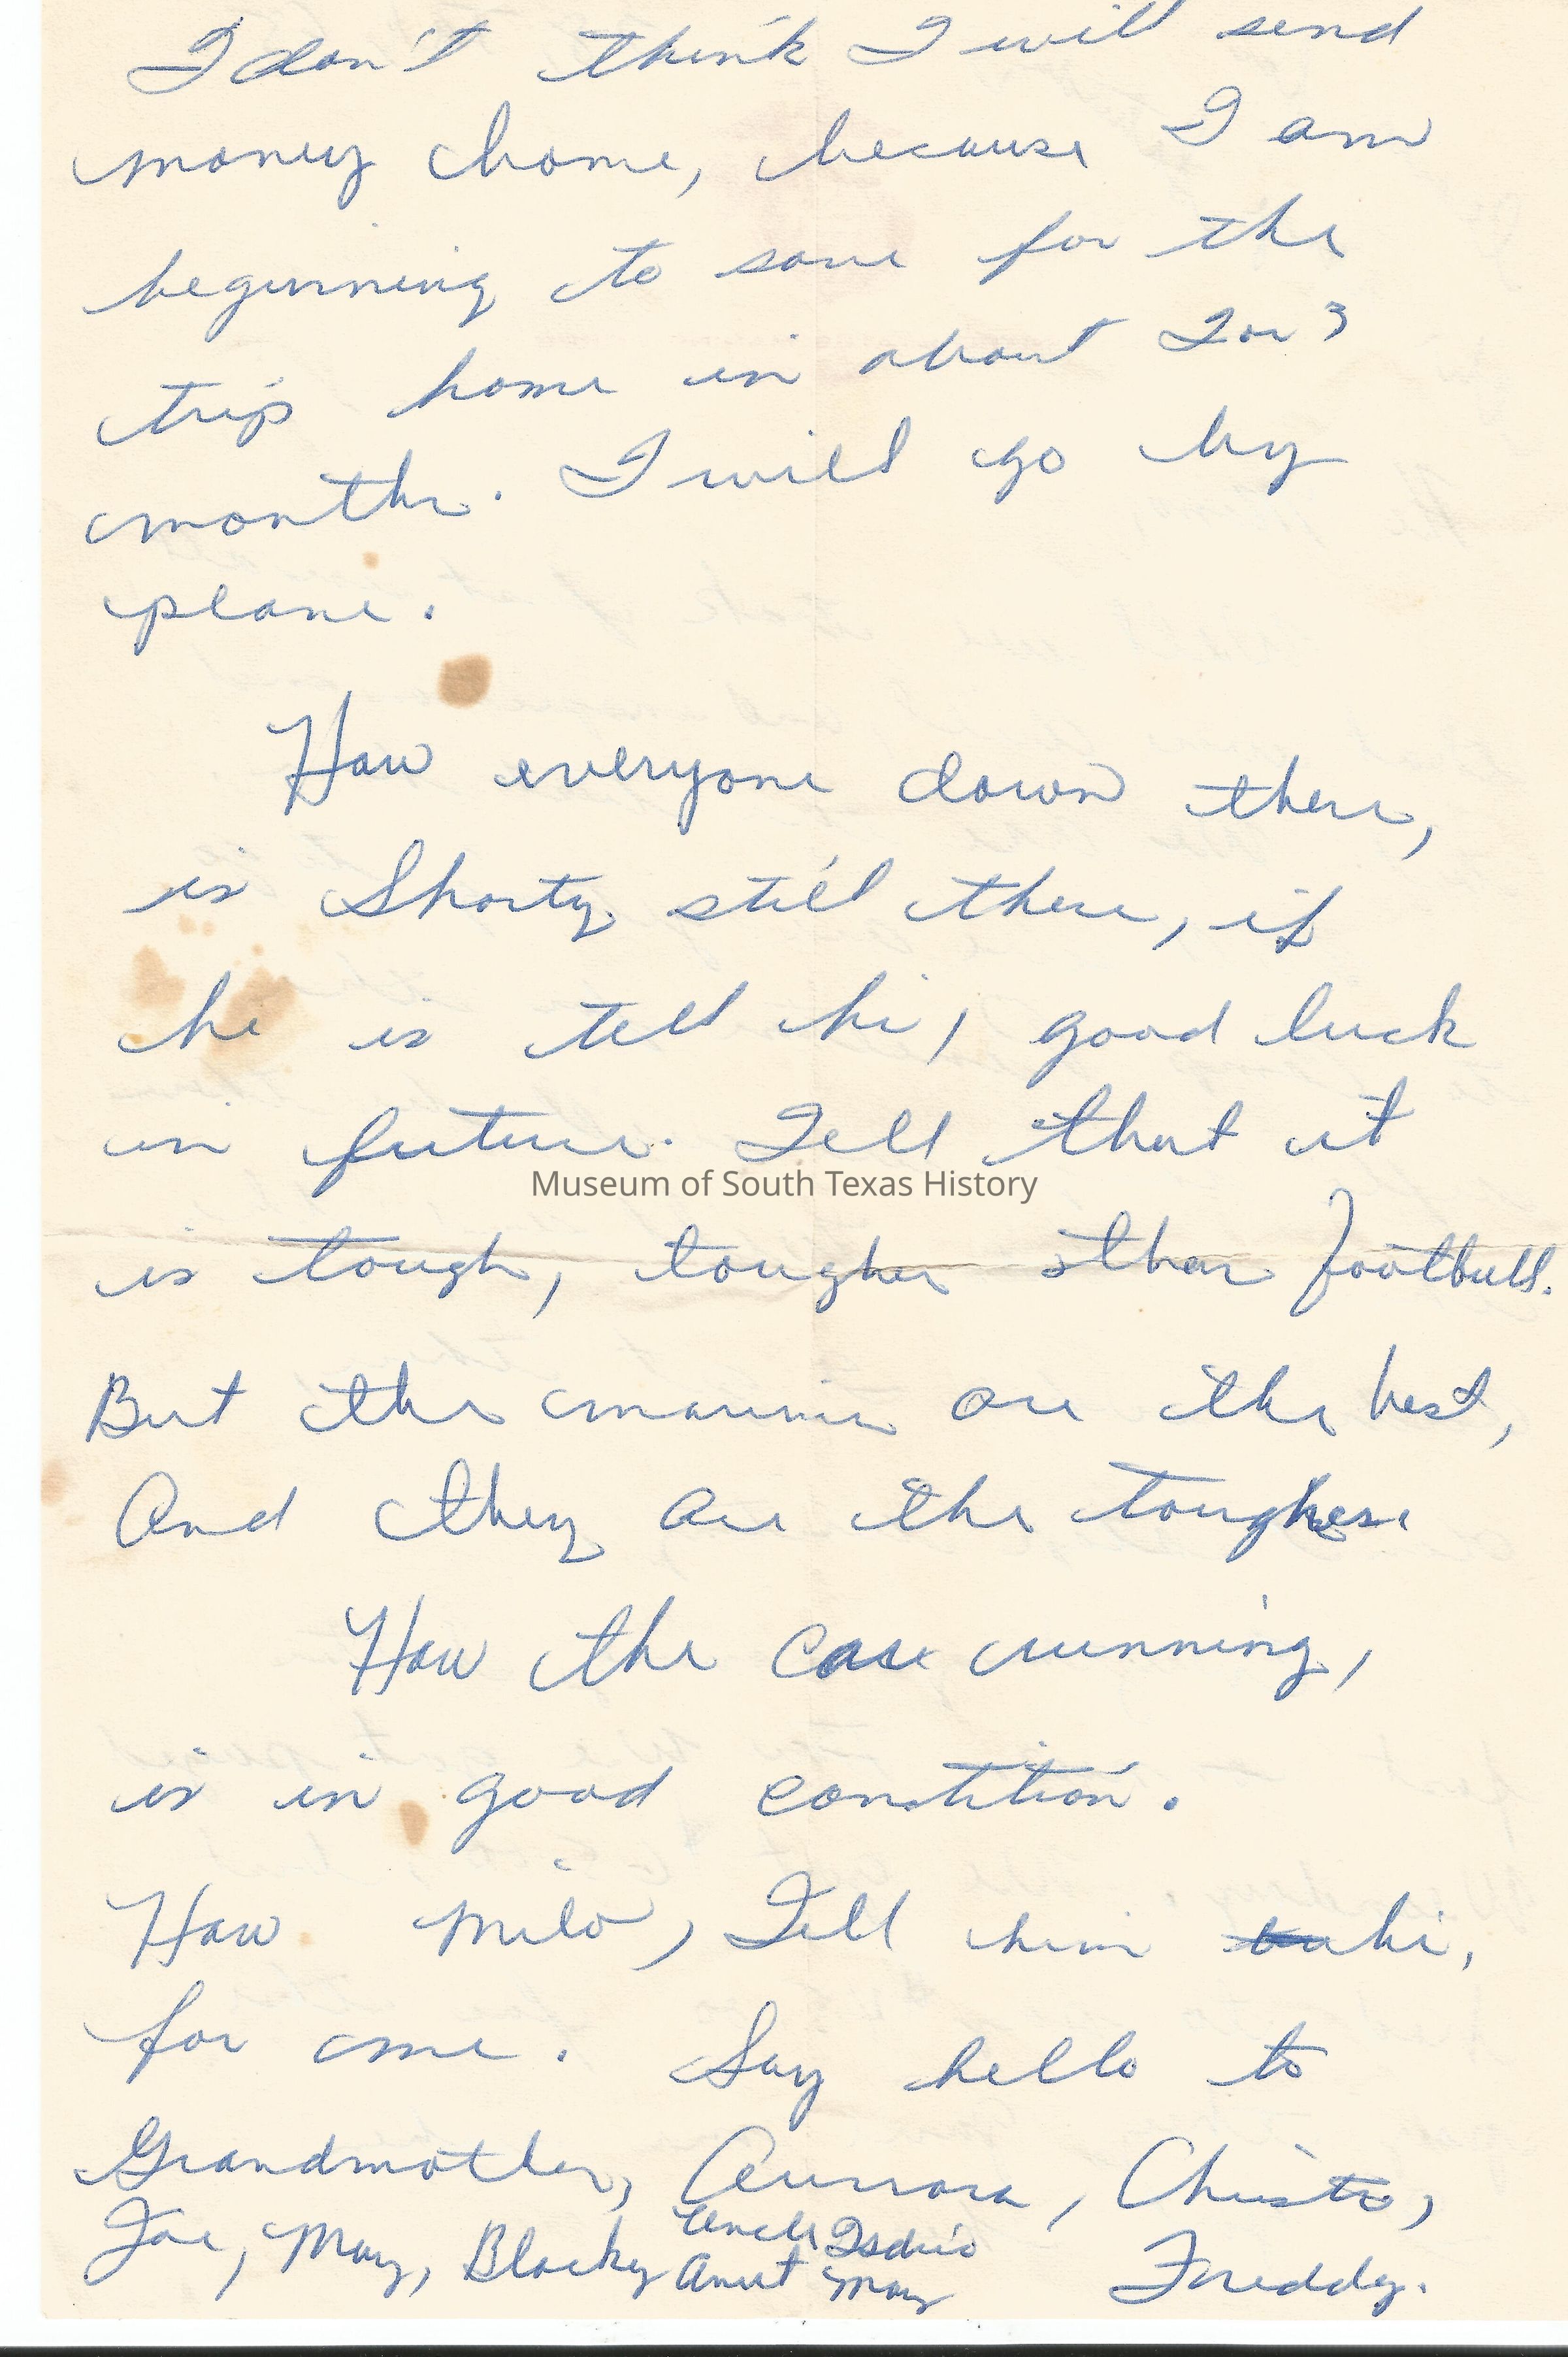 I don't think I will send
money home, because I am
beginning to save for the
trip home in about 2 or 3
months. I will go by
plane.
How everyone down there,
is Shorty still there, if
he is tell hi, good luck
in future. Tell that it
is tough, tougher than football.
But the marines are the best,
And they are the toughess
How the car running,
is in good contition.
How Milo, Tell him hi,
for me. Say hello to
Grandmother, Aurrora, Christo,
Joe, May, Blacky Uncle Isdrio
Aunt May Freddy.
Museum of South Texas History